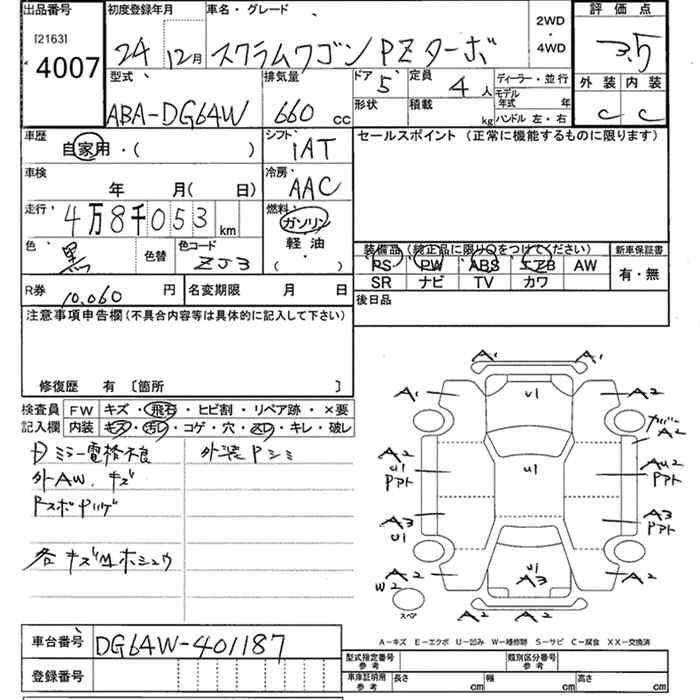 出品番号 初度登録年月 車名・グレード 2WD・4WD 評価点
[2163]
4007
24 12月 スクラムワゴン PZターボ 3.5
型式 排気量 ドア 5 定員 4人 ディーラー・並行 外装 内装
ABA-DG64W 660 cc 形状 積載 kg モデル年式 年 C C
ハンドル 左・右
車歴 シフト セールスポイント (正常に機能するものに限ります)
自家用・( ) IAT
車検 冷房
年 月( 日) AAC
走行 燃料
4万8千053 km ガソリン
色 黒 色替 色コード ZJ3 軽油
( )
装備品 (純正品に限り○をつけてください) 新車保証書
PS PW ABS エアB AW 有・無
SR ナビ TV カワ
R券 10,060 円 名変期限 月 日 後日品
注意事項申告欄 (不具合内容等は具体的に記入して下さい)
修復歴 有 〔箇所 〕
検査員 FW キズ・飛石・ヒビ割・リペア跡・×要
記入欄 内装 キズ・汚レ・コゲ・穴・スレ・キレ・破レ
ミラー電格不良 外装Pシミ
外AW.キズ
各キズ凹ホシュウ
A1 A1
A1 U1 A2
カバーA2
A2 U1 Pアト U1 AU2 Pアト
A3 U1 A3 Pアト
A2 W2 U1 A3 A2
A2 A2
スペア
A-キズ E-エクボ U-凹み W-補修跡 S-サビ C-腐食 XX-交換済
車台番号 DG64W-401187
型式指定番号 参考 類別区分番号 参考
登録番号 車庫証明用 参考 長さ cm 幅 cm 高さ cm